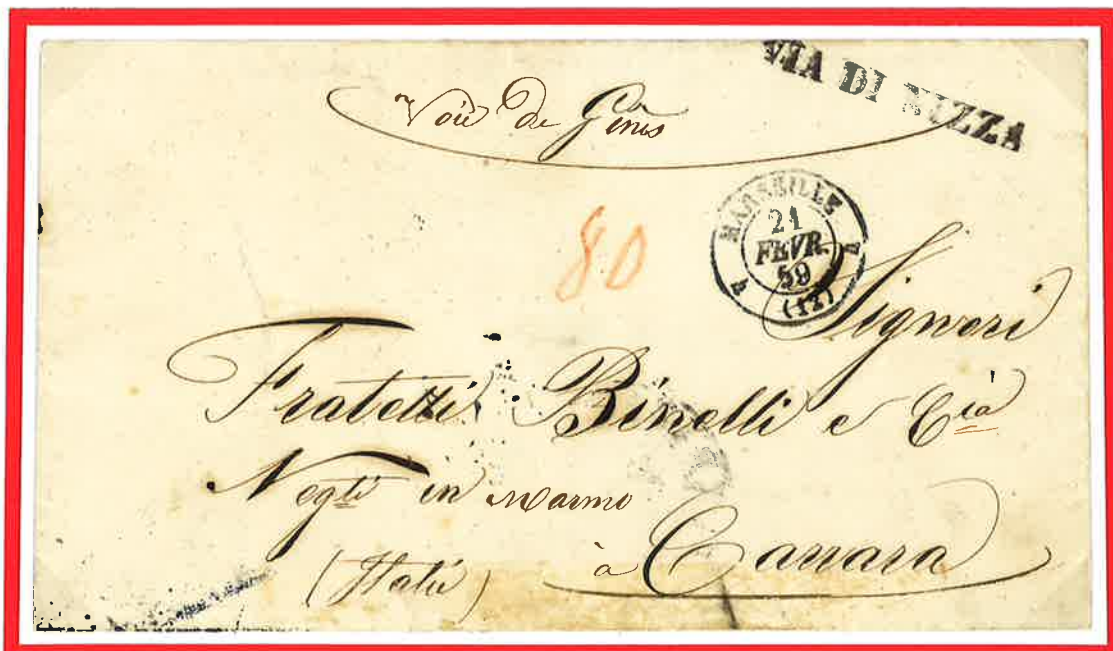 VIA DI NIZZA
Voie de Gênes
MARSEILLE
21
FEVR.
59
(12)
80
Signori
Fratelli Binelli e Cia
Negti in Marmo
à Carrara
(Italie)